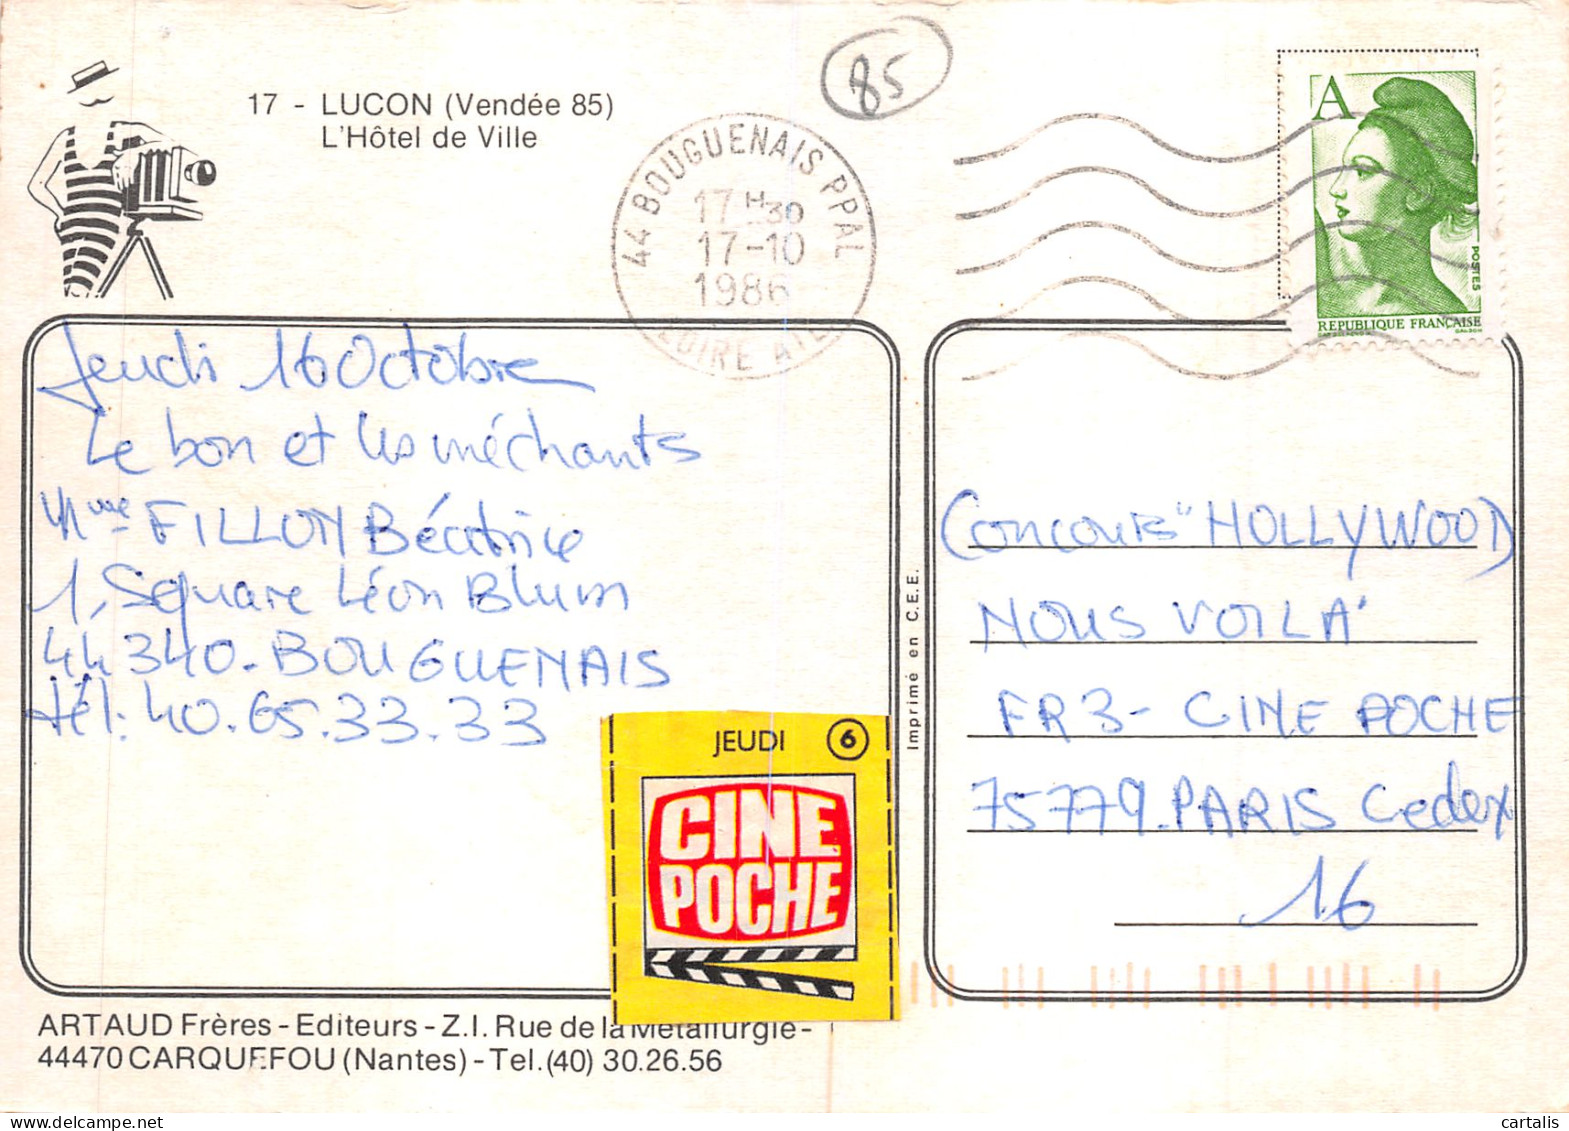 17 - LUCON (Vendée 85)
L'Hôtel de Ville
85
44 BOUGUENAIS PPAL
17 H 30
17-10
1986
LOIRE ATL
A
POSTES
REPUBLIQUE FRANÇAISE
Jeudi 16 Octobre
Le bon et les méchants
Mme FILLON Béatrice
1, Square Léon Blum
44 340. BOUGUENAIS
tél: 40.65.33.33
JEUDI 6
CINE
POCHE
Imprimé en C.E.E.
Concours "HOLLYWOOD
NOUS VOILA'
FR3- CINE POCHE
75779. PARIS Cedex
16
ARTAUD Frères - Editeurs - Z.I. Rue de la Métallurgie -
44470 CARQUEFOU (Nantes) - Tel. (40) 30.26.56
cartalis